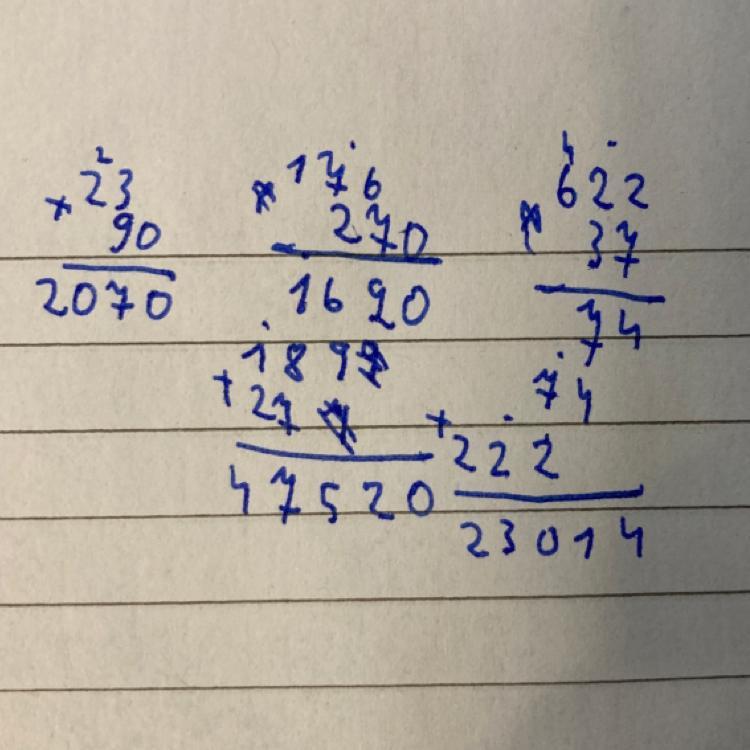 2
× 23
90
2070
× 176
270
1620
189
+ 27
47520
4
× 622
37
74
74
+ 222
23014